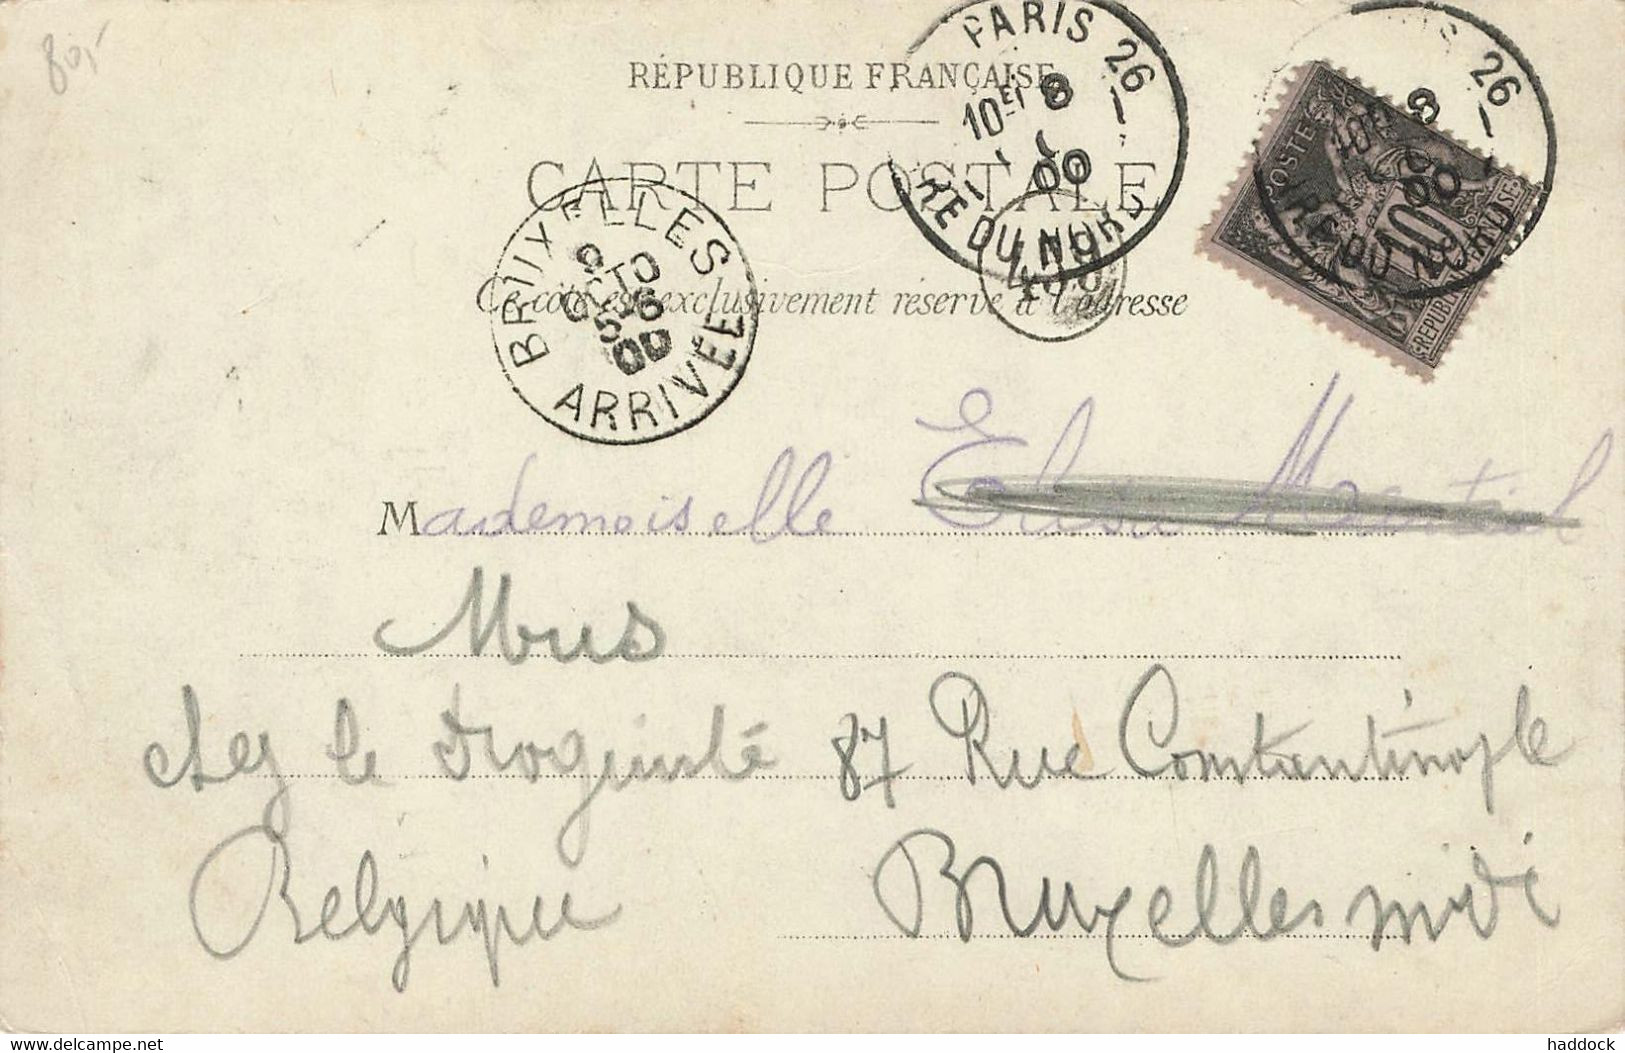 80,-
RÉPUBLIQUE FRANÇAISE
CARTE POSTALE
Ce côté est exclusivement réservé à l'adresse
PARIS 26
10E 8
00
RE DU NORD
26
8
00
RE DU NORD
POSTES
10
REPUBLIQUE FRANÇAISE
BRUXELLES
9
OCTO
5-6
00
ARRIVÉE
Mademoiselle Elisa
chez le 87 Rue Constantinople
Belgique Bruxelles midi
www.delcampe.net
haddock